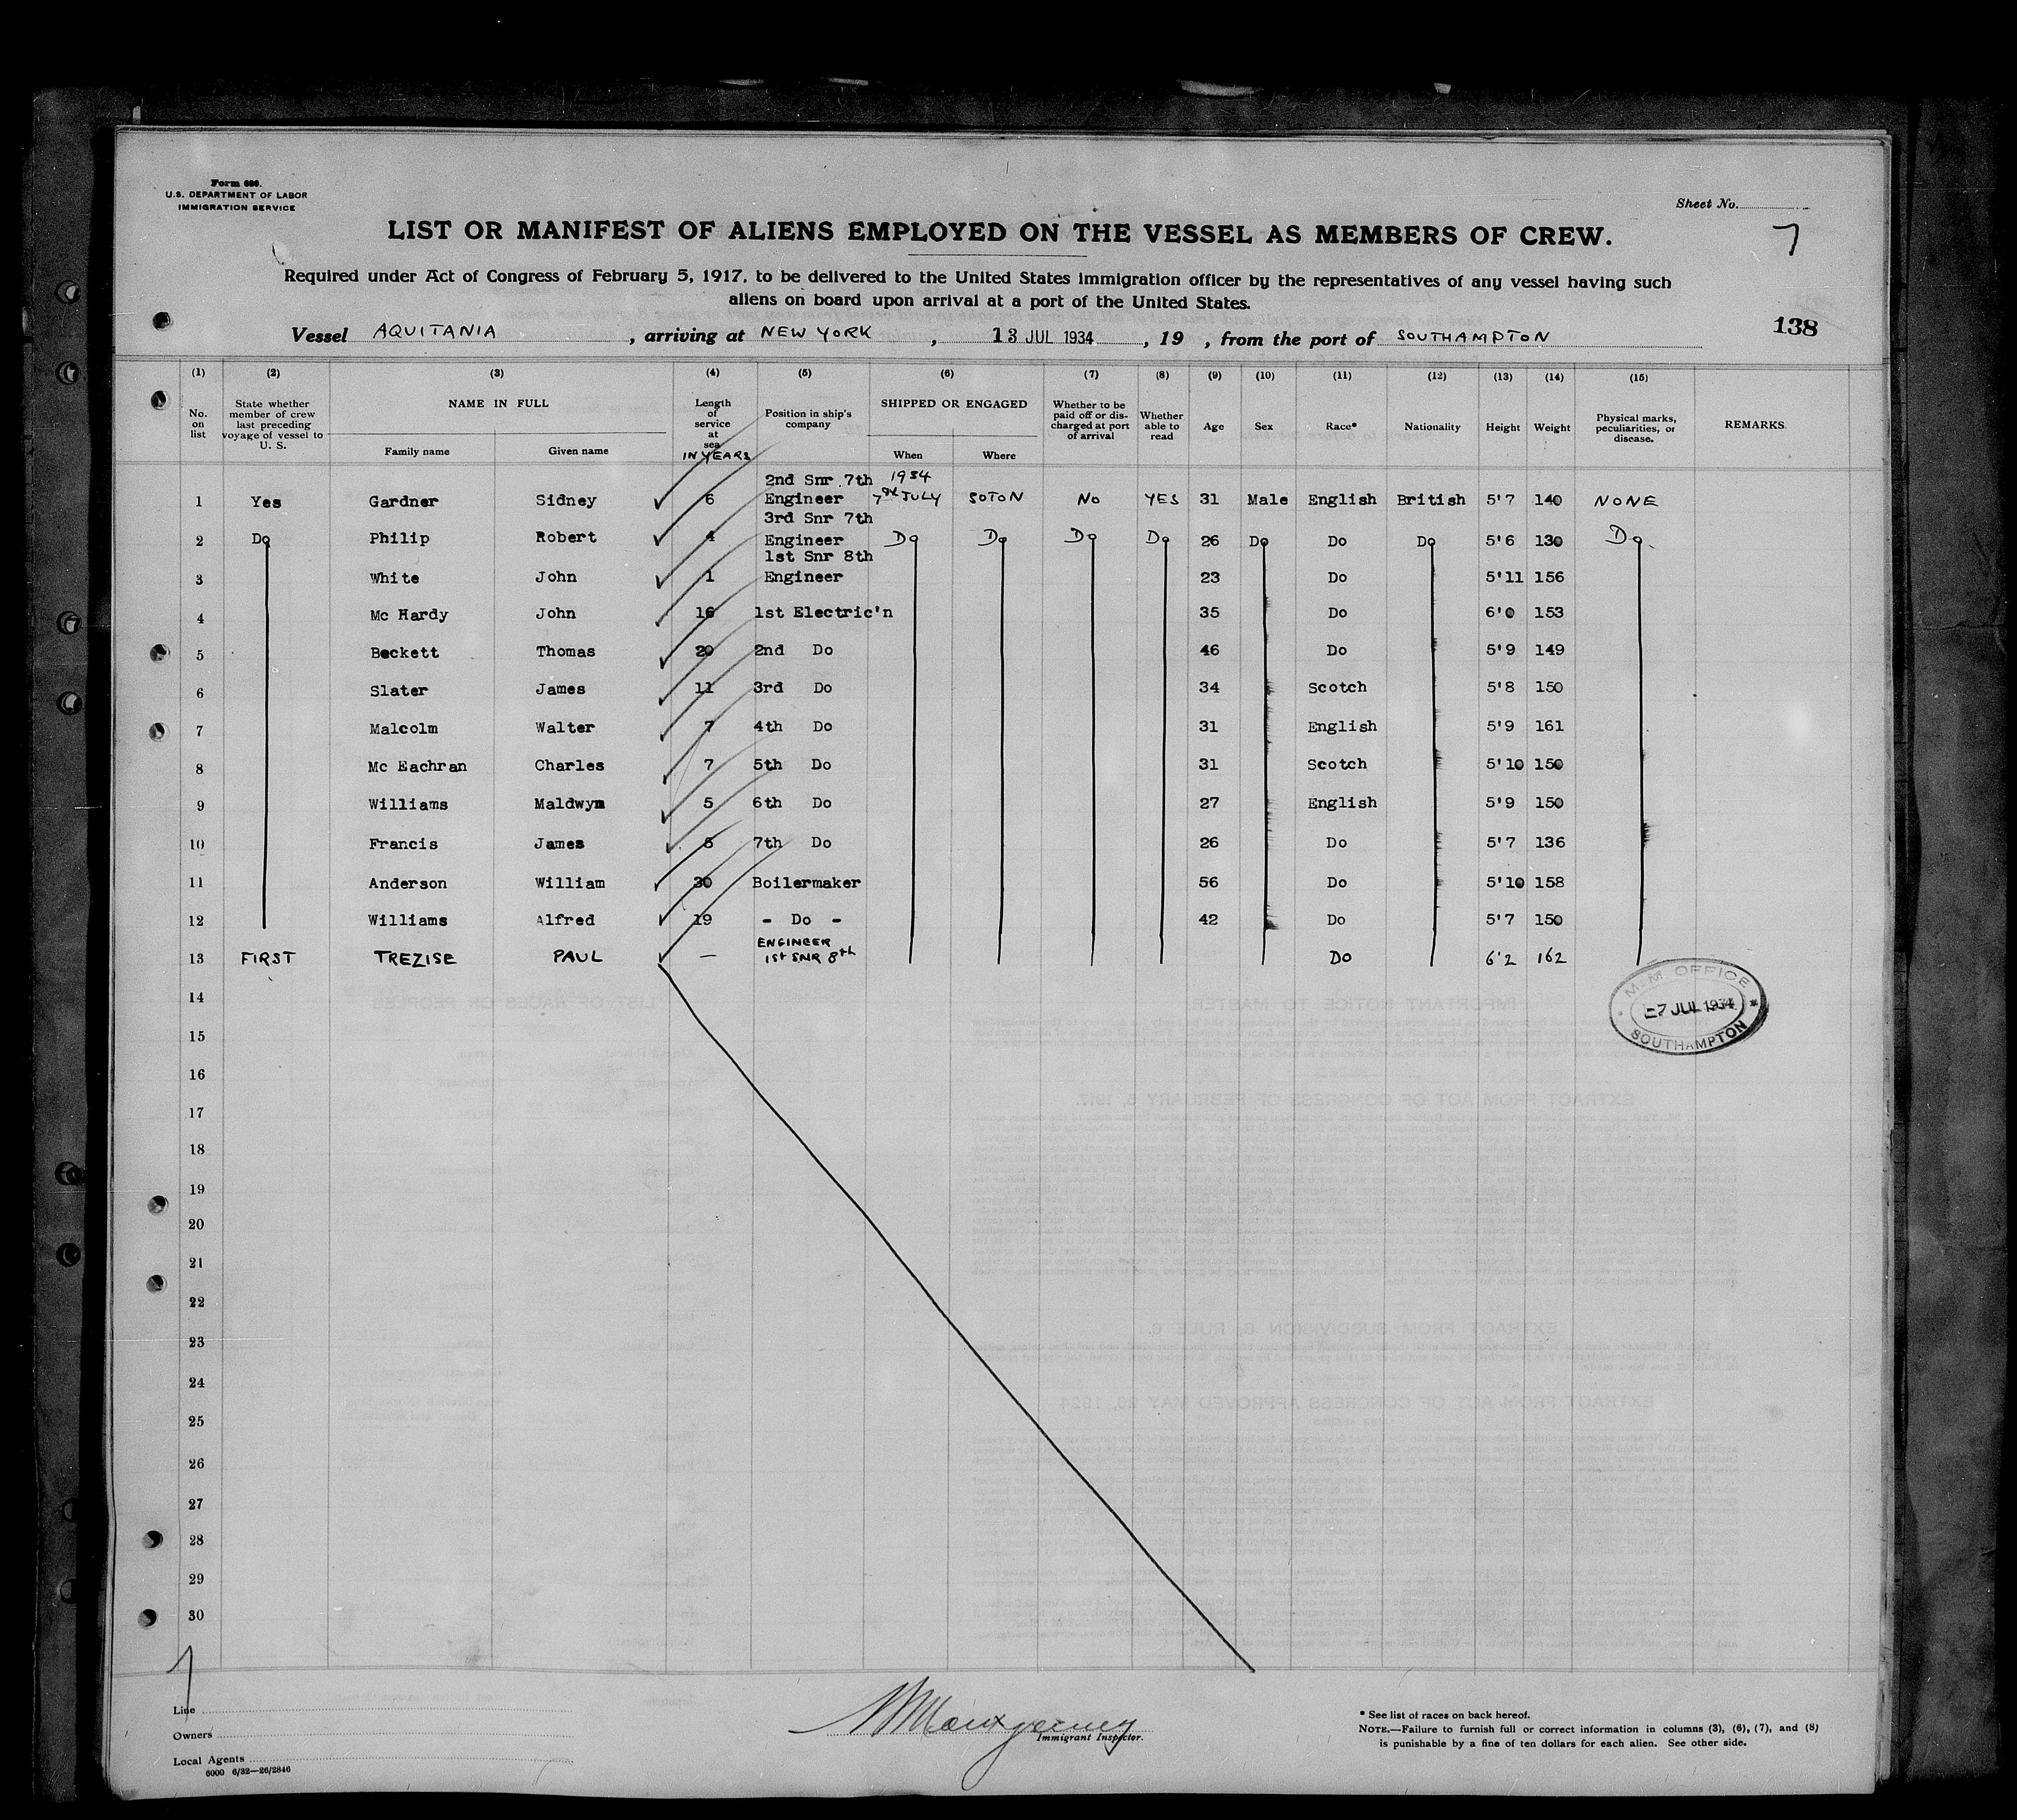 Form 680.
U.S. DEPARTMENT OF LABOR
IMMIGRATION SERVICE
Sheet No.
LIST OR MANIFEST OF ALIENS EMPLOYED ON THE VESSEL AS MEMBERS OF CREW.
7
Required under Act of Congress of February 5, 1917, to be delivered to the United States immigration officer by the representatives of any vessel having such
aliens on board upon arrival at a port of the United States.
138
Vessel AQUITANIA, arriving at NEW YORK, 13 JUL 1934, 19 , from the port of SOUTHAMPTON
(1) (2) (3) (4) (5) (6) (7) (8) (9) (10) (11) (12) (13) (14) (15)
No. on list State whether member of crew last preceding voyage of vessel to U. S. NAME IN FULL Family name Given name Length of service at sea IN YEARS Position in ship's company SHIPPED OR ENGAGED When Where Whether to be paid off or discharged at port of arrival Whether able to read Age Sex Race* Nationality Height Weight Physical marks, peculiarities, or disease. REMARKS.
1 Yes Gardner Sidney 6 2nd Snr 7th Engineer 1934 7th JULY SOTON NO YES 31 Male English British 5'7 140 NONE
2 Do Philip Robert 4 3rd Snr 7th Engineer Do Do Do Do 26 Do Do Do 5'6 130 Do.
3 White John 1 1st Snr 8th Engineer 23 Do 5'11 156
4 Mc Hardy John 16 1st Electric'n 35 Do 6'0 153
5 Beckett Thomas 20 2nd Do 46 Do 5'9 149
6 Slater James 11 3rd Do 34 Scotch 5'8 150
7 Malcolm Walter 7 4th Do 31 English 5'9 161
8 Mc Eachran Charles 7 5th Do 31 Scotch 5'10 150
9 Williams Maldwym 5 6th Do 27 English 5'9 150
10 Francis James 5 7th Do 26 Do 5'7 136
11 Anderson William 30 Boilermaker 56 Do 5'10 158
12 Williams Alfred 19 - Do - 42 Do 5'7 150
13 FIRST TREZISE PAUL — ENGINEER 1st SNR 8th DO 6'2 162
M.M. OFFICE
7 JUL 1934
SOUTHAMPTON
14
15
16
17
18
19
20
21
22
23
24
25
26
27
28
29
30
Line
Owners
Local Agents
6000 6/32—26/2846
Montgomery
Immigrant Inspector.
* See list of races on back hereof.
NOTE.—Failure to furnish full or correct information in columns (3), (6), (7), and (8)
is punishable by a fine of ten dollars for each alien. See other side.